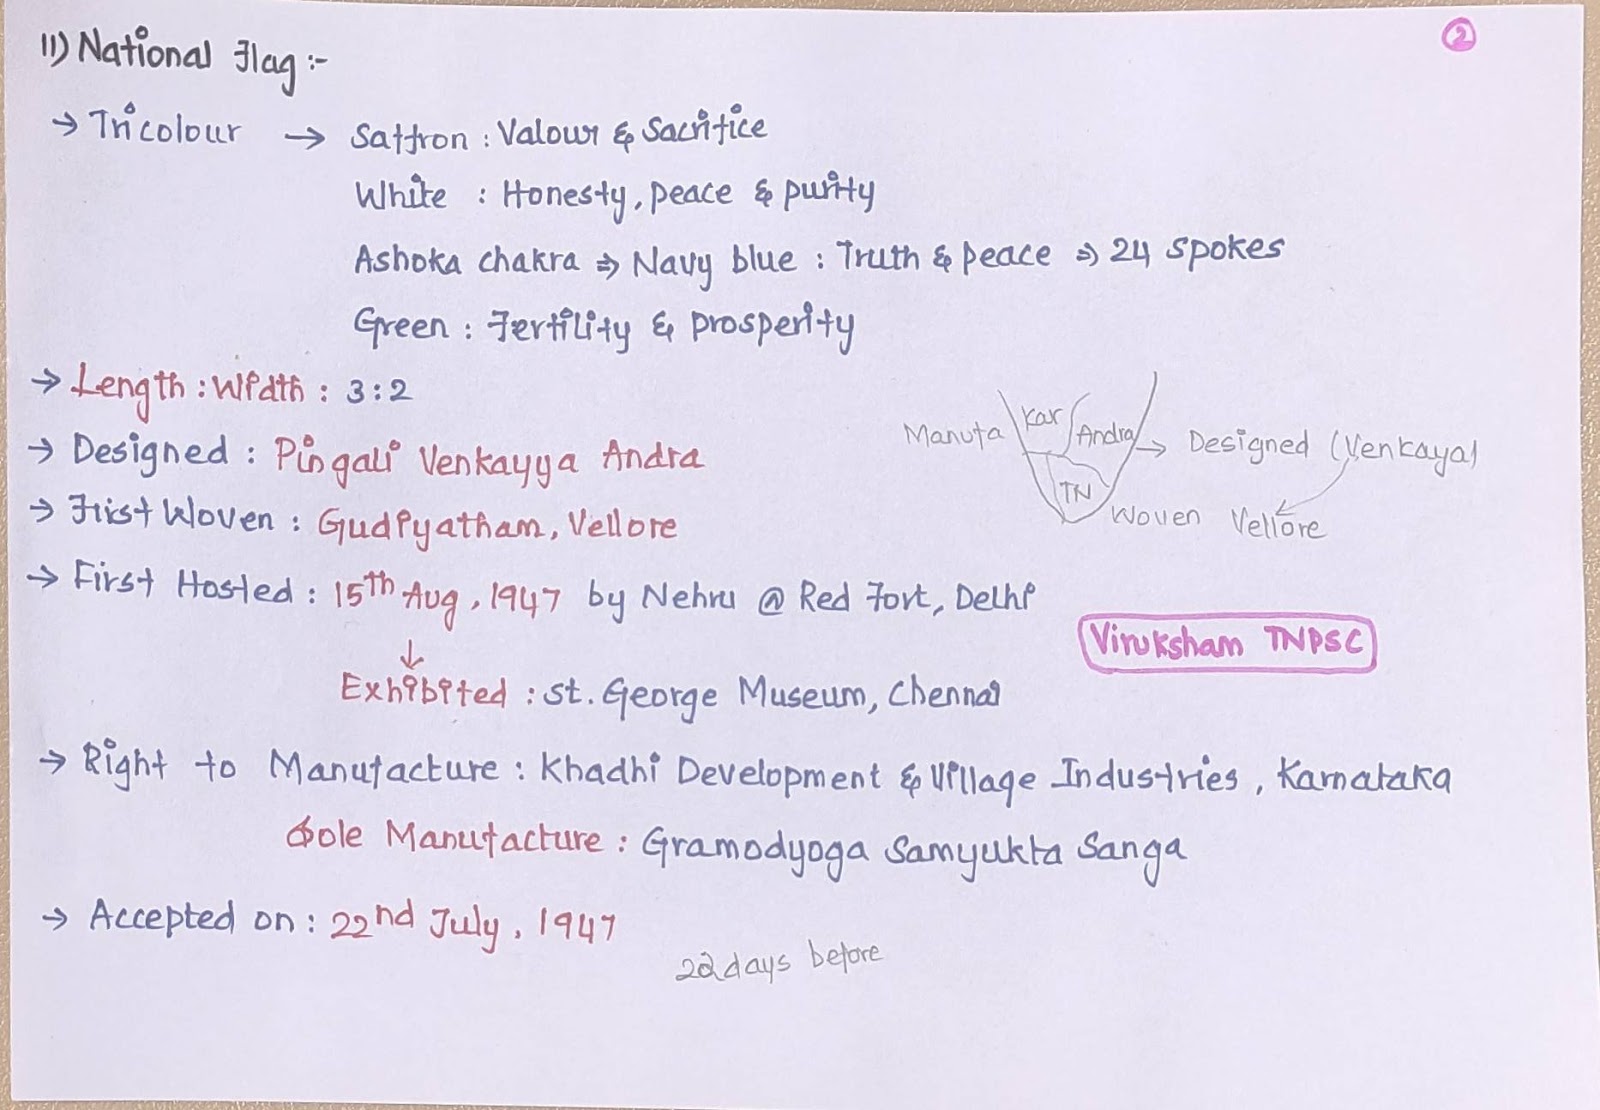 11) National Flag :-
②
→ Tricolour → Saffron : Valour & Sacrifice
White : Honesty, peace & purity
Ashoka chakra ⇒ Navy blue : Truth & peace ⇒ 24 spokes
Green : Fertility & prosperity
→ Length : Width : 3 : 2
→ Designed : Pingali Venkayya Andra
Manufa Kar Andra → Designed (Venkaya)
TN
Woven Vellore
→ First Woven : Gudiyatham, Vellore
→ First Hosted : 15th Aug, 1947 by Nehru @ Red Fort, Delhi
Viruksham TNPSC
↓
Exhibited : St. George Museum, Chennai
→ Right to Manufacture : Khadhi Development & Village Industries, Karnataka
Sole Manufacture : Gramodyoga Samyukta Sanga
→ Accepted on : 22nd July, 1947
22 days before